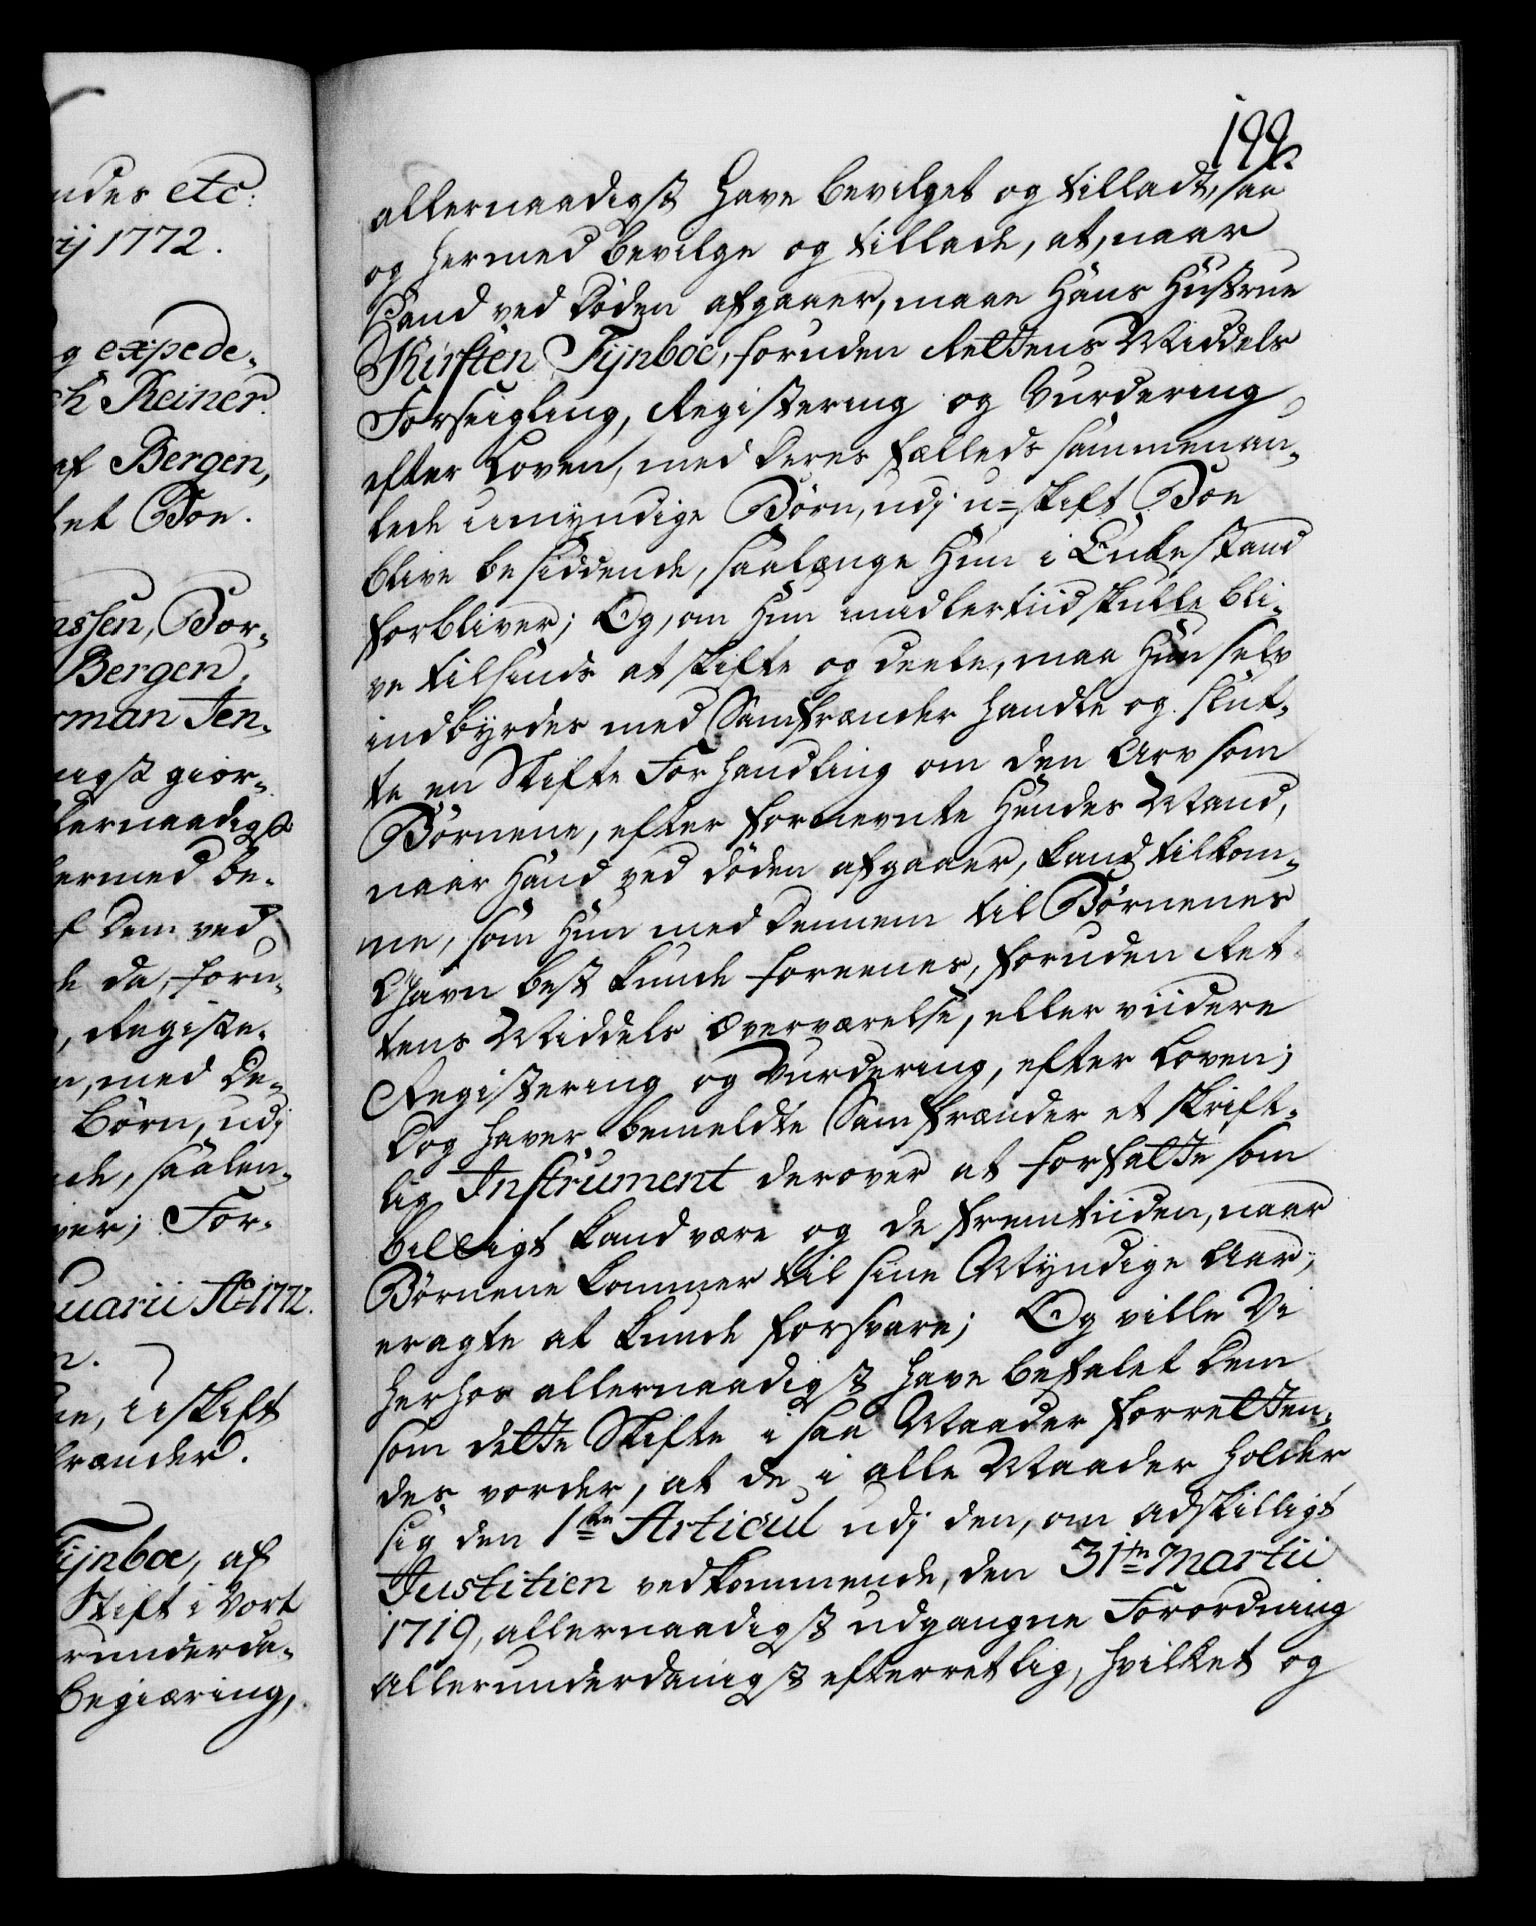 ndes etc:
rij 1772.
g expede-
ch Reiner
af Bergen,
tet Boe.
assen, Bor-
Bergen,
rman Jen-
nigst giør-
lernaadigst
ermed be-
f dem ved
de da, foru-
, Registe-
n, med De-
Børn, udj
nde, saalen-
iver; For-
uarii Ao 1772.
n.
ue, uskift
frænder.
Fijnboe, af
Stift i Vort
runderda-
begiæring,
199.
allernaadigst have bevilget og tilladt, saa
og hermed bevilge og tillade, at, naar
Hand ved Døden afgaaer, maae Hans Hustrue
Kirsten Fijnboe, foruden Rettens Middels
Forseigling, Registering og Vurdering
efter Loven, med deres fælleds sammenau-
lede umyndige Børn, udj u-skift Boe
blive besiddende, saalænge Hun i Enkestand
forbliver; Og, om Hun imidlertiid skulle bli-
ve tilsinds at skifte og deele, maa Hun selv
indbyrdes med Samfrænder handle og slut-
te en Skifte Forhandling om den Arv som
Børnene, efter fornevnte Hendes Mand,
naar Hand ved Døden afgaaer, kand tilkom-
me, som Hun med dennem til Børnenes
Gavn best kunde foreenes, foruden Ret-
tens Middels Overværelse, eller viidere
Registering og Vurdering, efter Loven;
Dog haver bemeldte Samfrænder et skrift-
lig Instrument derover at forfatte som
billigt kand være og de fremtiiden, naar
Børnene kommer til sine Myndige Aar,
eragte at kunde forsvare; Og ville Vi
herhos allernaadigst have befalet dem
som dette Skifte i saa Maader forretten-
des vorder, at de i alle Maader holder
sig den 1te Articul udj den, om adskilligt
Justitien vedkommende, den 31te Martii
1719, allernaadigst udgangne Forordning
allerunderdanigst efterretlig, hvilket og